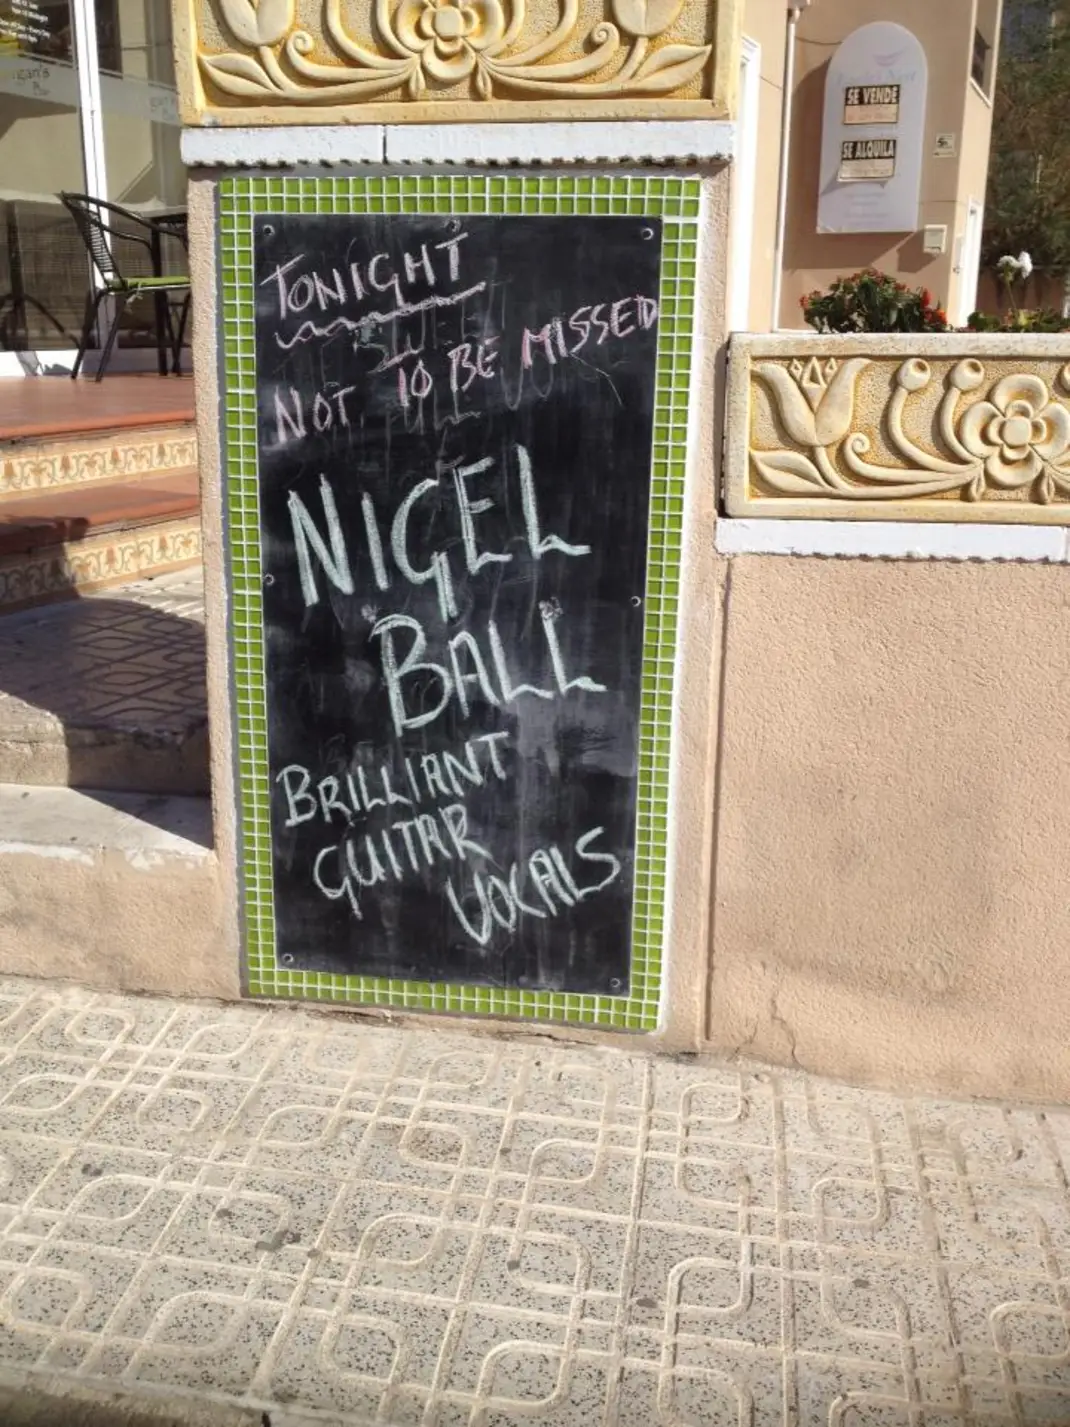 TONIGHT
NOT TO BE MISSED
NIGEL
BALL
BRILLIANT
GUITAR
VOCALS
SE VENDE
SE ALQUILA
Bar